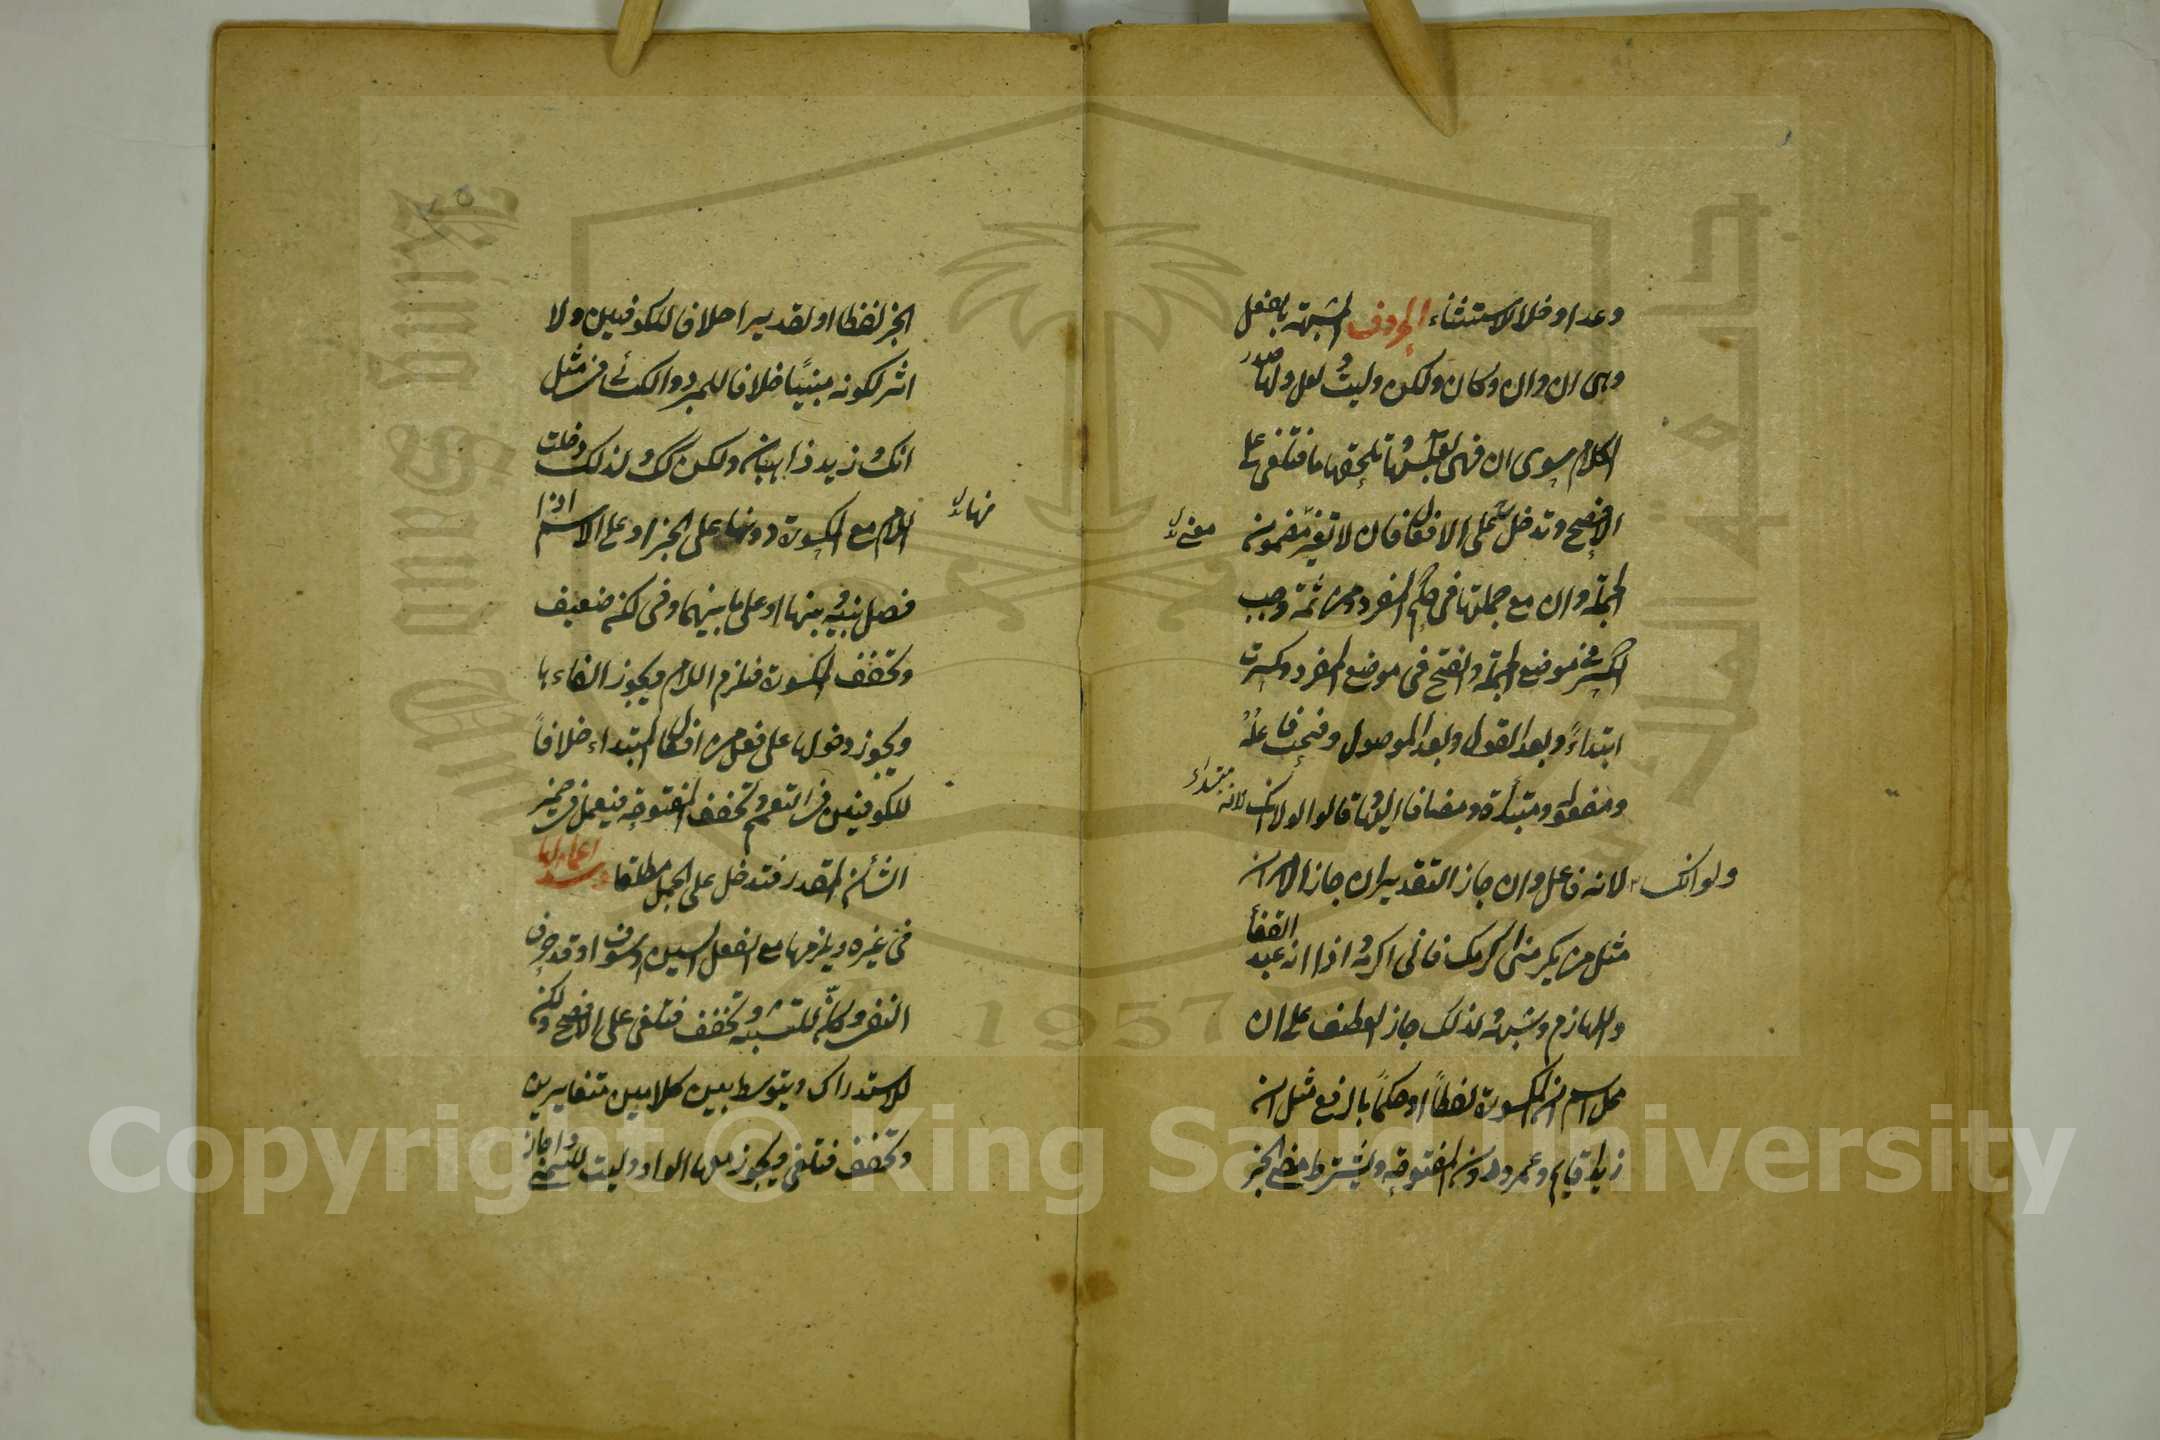 وعدا وخلا للاستثناء الحروف المشبهة بالفعل
وهي ان وان وكان ولكن وليت ولعل ولها صدر
الكلام سوى ان فهي بعكسها وتلحقها ما فتلغى على
الافصح وتدخل ح على الافعال فان لا تغير مضمونه
معنى
الجملة وان مع جملتها في حكم المفرد ومن ثمة وجب
الكسر في موضع الجملة والفتح في موضع المفرد وكسرت
ابتداءً وبعد القول وبعد الموصول وفتحت فاعلة
ومفعولة ومبتدأة ومضافا اليها وقالوا لولا انك لانه مبتداء
ولو انك لانه فاعل وان جاز التقديران جاز الامران
مثل من يكرمني اكرمك فاني اكرمه اذا انه عبد القفا
واللهازم وشبهه ولذلك جاز العطف على ان
محل اسم ان المكسورة لفظاً او حكماً بالرفع مثل ان
زيدا قايم وعمرو دون المفتوحة ويشترط مضي الخبر
الخبر لفظا او تقديرا خلافا للكوفيين ولا
اثر لكونه مبنيًا خلافا للمبرد والكسائي في مثل
انك وزيد ذاهبان ولكن كك ولذلك دخلت
اللام مع المكسورة دونها على الخبر او على الاسم اذا
فصل بينه وبينها او على ما بينهما وفي لكن ضعيف
وتخفف المكسورة فيلزم اللام ويجوز الغاءها
ويجوز دخولها على فعل من افعال المبتداء خلافاً
للكوفيين في التعميم وتخفف المفتوحة فيعمل في ضمير
الشأن المقدر فتدخل على الجمل مطلقا وشذ اعمالها
في غيره ويلزمها مع الفعل السين او سوف او قد حرف
النفي وكأن للتشبيه وتخفف فتلغى على الافصح ولكن
للاستدراك ويتوسط بين كلامين متغايرين
وتخفف فتلغى ويجوز معها الواو وليت للتمني واجاز
Copyright © King Saud University
King Saud University
1957